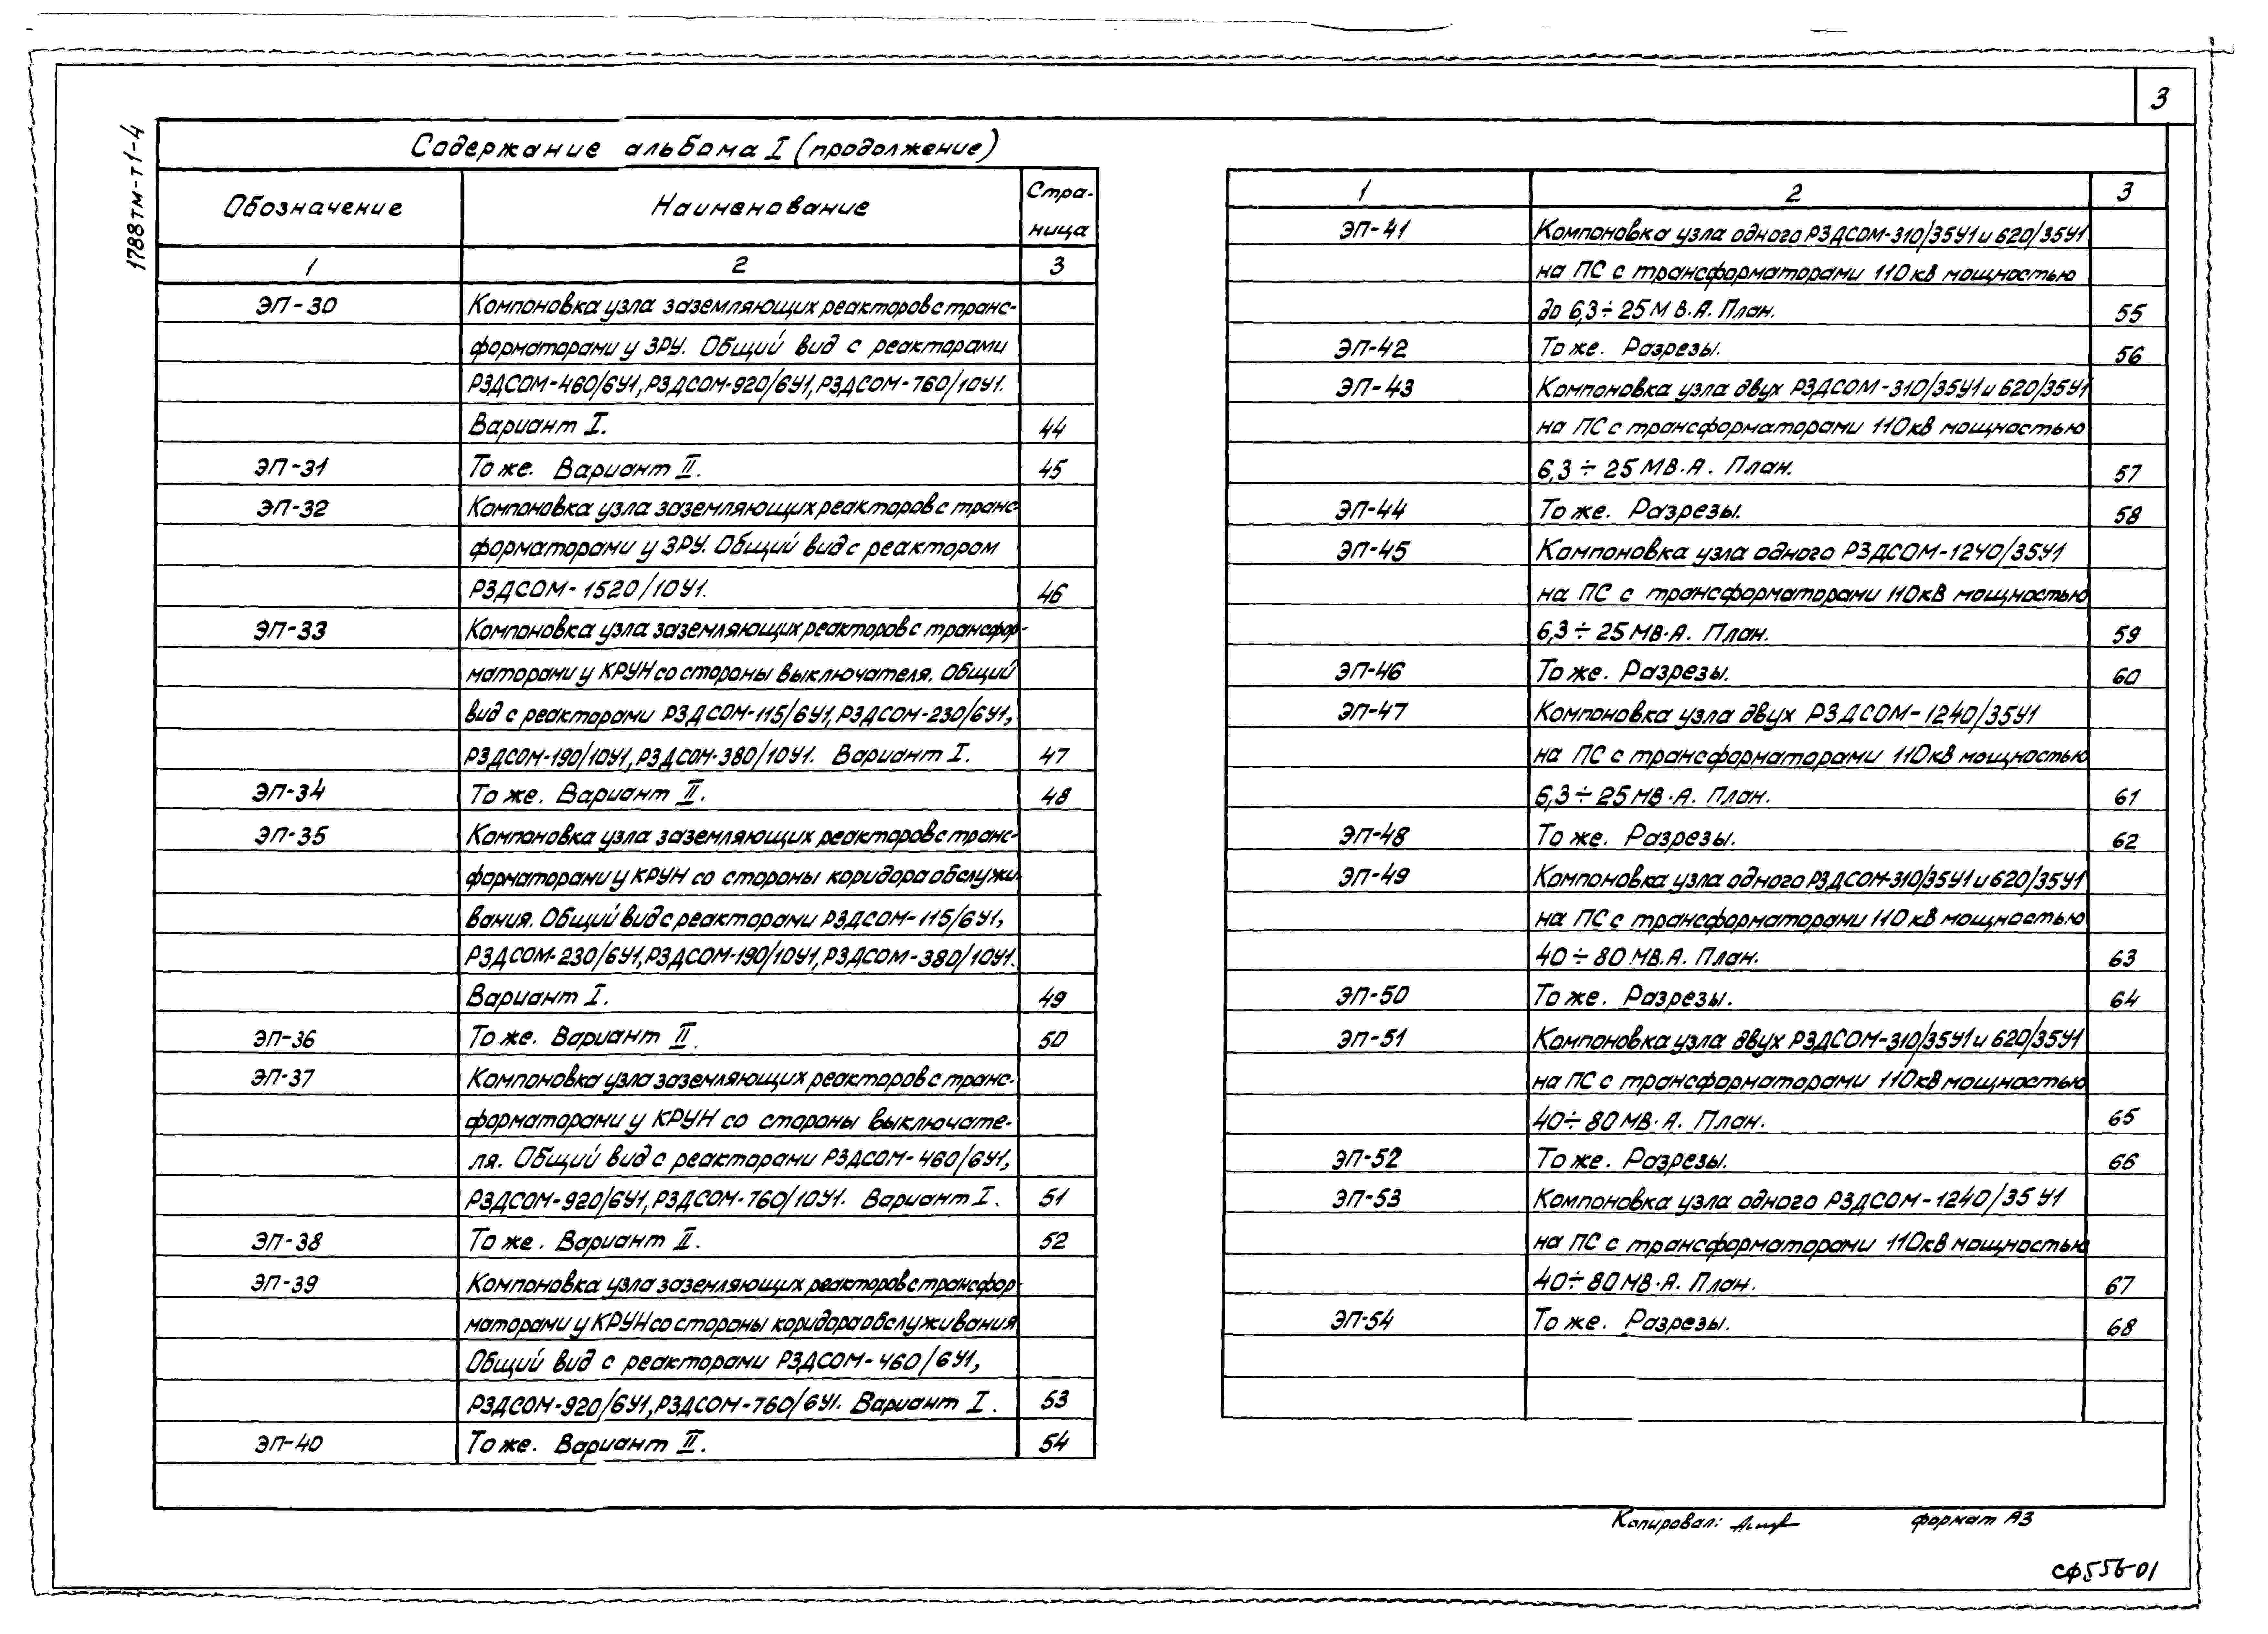 3
1788тм-т1-4
Содержание альбома I (продолжение)
Обозначение Наименование Стра-
ница
1 2 3
ЭП-30 Компоновка узла заземляющих реакторов с транс-
форматорами у ЗРУ. Общий вид с реакторами
РЗДСОМ-460/6У1, РЗДСОМ-920/6У1, РЗДСОМ-760/10У1.
Вариант I. 44
ЭП-31 То же. Вариант II. 45
ЭП-32 Компоновка узла заземляющих реакторов с транс-
форматорами у ЗРУ. Общий вид с реактором
РЗДСОМ-1520/10У1. 46
ЭП-33 Компоновка узла заземляющих реакторов с трансфор-
маторами у КРУН со стороны выключателя. Общий
вид с реакторами РЗДСОМ-115/6У1, РЗДСОМ-230/6У1,
РЗДСОМ-190/10У1, РЗДСОМ-380/10У1. Вариант I. 47
ЭП-34 То же. Вариант II. 48
ЭП-35 Компоновка узла заземляющих реакторов с транс-
форматорами у КРУН со стороны коридора обслужи-
вания. Общий вид с реакторами РЗДСОМ-115/6У1,
РЗДСОМ-230/6У1, РЗДСОМ-190/10У1, РЗДСОМ-380/10У1.
Вариант I. 49
ЭП-36 То же. Вариант II. 50
ЭП-37 Компоновка узла заземляющих реакторов с транс-
форматорами у КРУН со стороны выключате-
ля. Общий вид с реакторами РЗДСОМ-460/6У1,
РЗДСОМ-920/6У1, РЗДСОМ-760/10У1. Вариант I. 51
ЭП-38 То же. Вариант II. 52
ЭП-39 Компоновка узла заземляющих реакторов с трансфор-
маторами у КРУН со стороны коридора обслуживания
Общий вид с реакторами РЗДСОМ-460/6У1,
РЗДСОМ-920/6У1, РЗДСОМ-760/6У1. Вариант I. 53
ЭП-40 То же. Вариант II. 54
1 2 3
ЭП-41 Компоновка узла одного РЗДСОМ-310/35У1 и 620/35У1
на ПС с трансформаторами 110кВ мощностью
до 6,3÷25 МВ.А. План. 55
ЭП-42 То же. Разрезы. 56
ЭП-43 Компоновка узла двух РЗДСОМ-310/35У1 и 620/35У1
на ПС с трансформаторами 110кВ мощностью
6,3÷25 МВ.А. План. 57
ЭП-44 То же. Разрезы. 58
ЭП-45 Компоновка узла одного РЗДСОМ-1240/35У1
на ПС с трансформаторами 110кВ мощностью
6,3÷25 МВ.А. План. 59
ЭП-46 То же. Разрезы. 60
ЭП-47 Компоновка узла двух РЗДСОМ-1240/35У1
на ПС с трансформаторами 110кВ мощностью
6,3÷25 МВ.А. План. 61
ЭП-48 То же. Разрезы. 62
ЭП-49 Компоновка узла одного РЗДСОМ-310/35У1 и 620/35У1
на ПС с трансформаторами 110кВ мощностью
40÷80 МВ.А. План. 63
ЭП-50 То же. Разрезы. 64
ЭП-51 Компоновка узла двух РЗДСОМ-310/35У1 и 620/35У1
на ПС с трансформаторами 110кВ мощностью
40÷80 МВ.А. План. 65
ЭП-52 То же. Разрезы. 66
ЭП-53 Компоновка узла одного РЗДСОМ-1240/35У1
на ПС с трансформаторами 110кВ мощностью
40÷80 МВ.А. План. 67
ЭП-54 То же. Разрезы. 68
Копировал: формат А3
СФ556-01